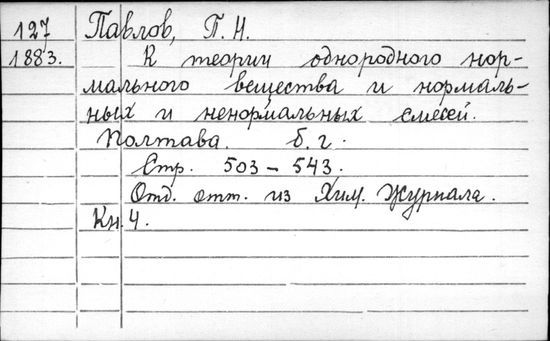 127 Павлов, П. Н.
1883. К теории однородного нор-
мального вещества и нормаль-
ных и ненормальных смесей.
Полтава. б. г.
Стр. 503 – 543.
Отд. отт. из Хим. Журнала.
Кн. 4.